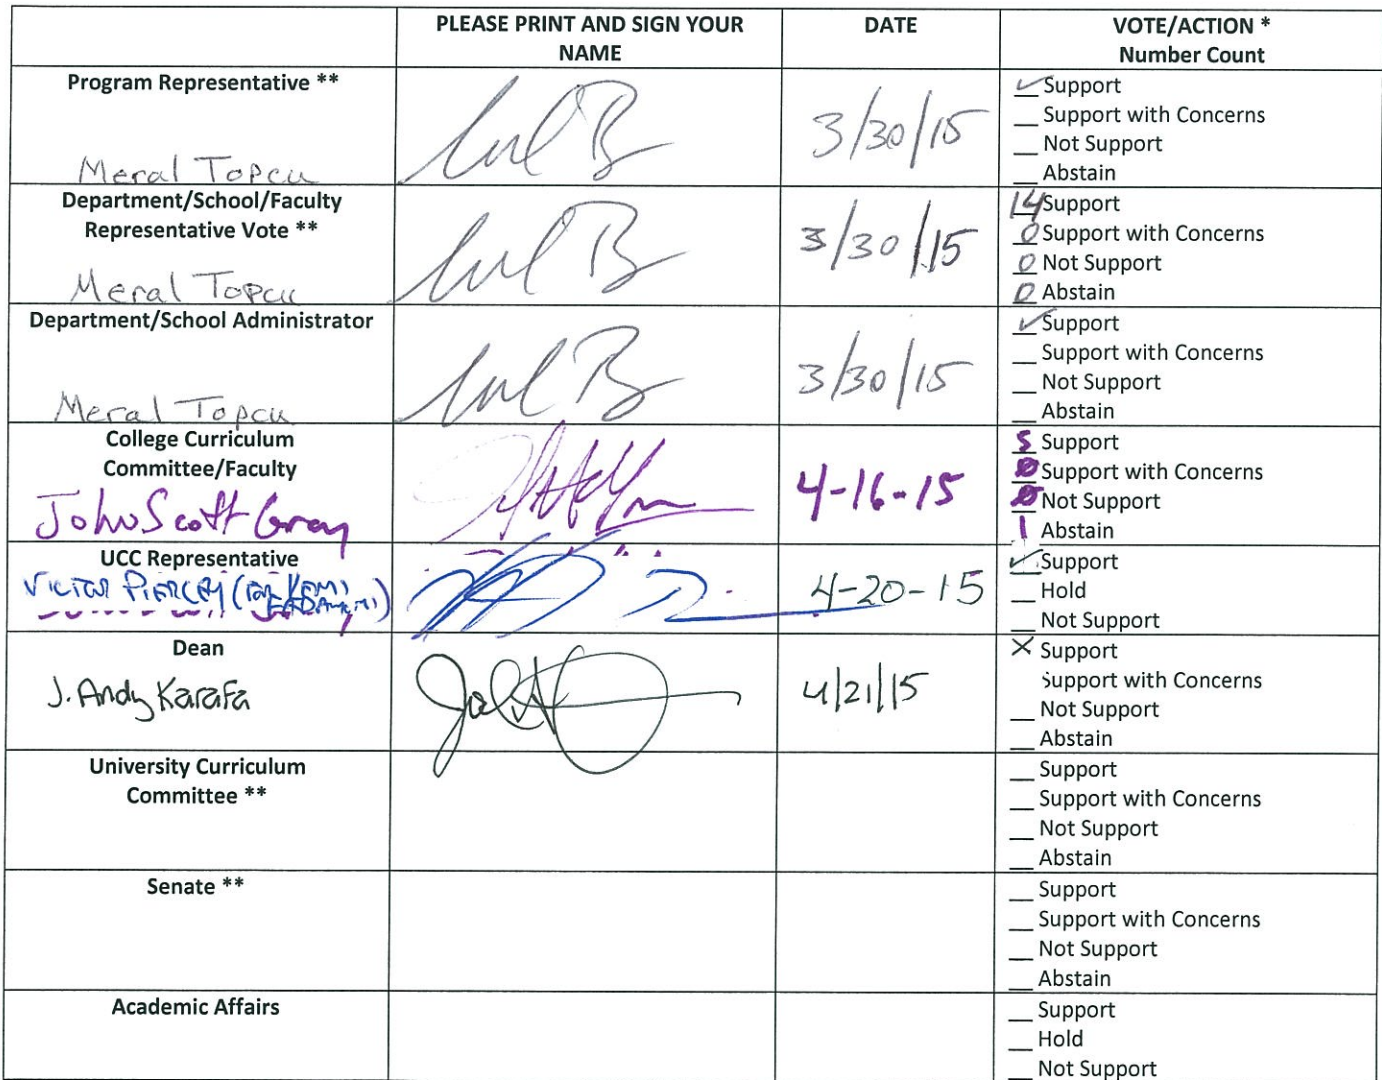 PLEASE PRINT AND SIGN YOUR NAME
DATE
VOTE/ACTION *
Number Count
Program Representative **
Meral Topcu
3/30/15
✓ Support
__ Support with Concerns
__ Not Support
__ Abstain
Department/School/Faculty
Representative Vote **
Meral Topcu
3/30/15
14 Support
0 Support with Concerns
0 Not Support
0 Abstain
Department/School Administrator
Meral Topcu
3/30/15
✓ Support
__ Support with Concerns
__ Not Support
__ Abstain
College Curriculum
Committee/Faculty
John Scott Gray
4-16-15
5 Support
0 Support with Concerns
0 Not Support
1 Abstain
UCC Representative
Victor Piercey (for Kemi
4-20-15
✓ Support
__ Hold
__ Not Support
Dean
J. Andy Karafa
4/21/15
X Support
Support with Concerns
__ Not Support
__ Abstain
University Curriculum
Committee **
__ Support
__ Support with Concerns
__ Not Support
__ Abstain
Senate **
__ Support
__ Support with Concerns
__ Not Support
__ Abstain
Academic Affairs
__ Support
__ Hold
__ Not Support